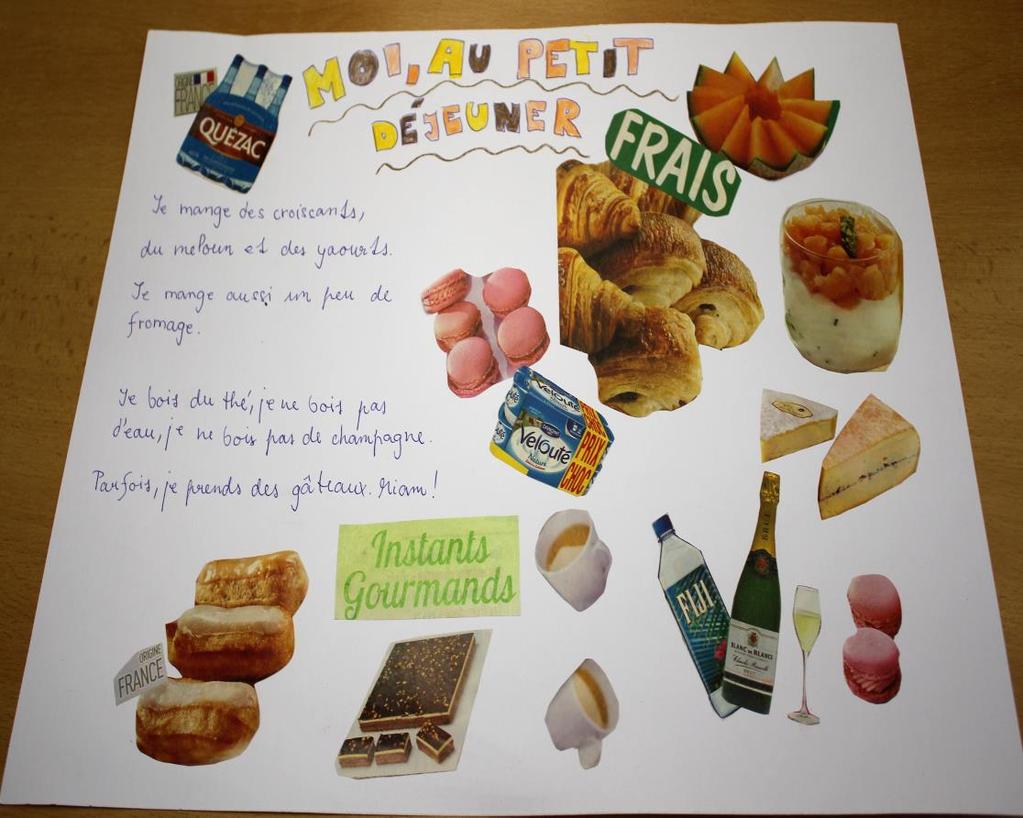 MOI, AU PETIT
DÉJEUNER
ORIGINE
FRANCE
QUÉZAC
FRAIS
Je mange des croissants,
du meloun et des yaourts.
Je mange aussi un peu de
fromage.
Je bois du thé, je ne bois pas
d'eau, je ne bois pas de champagne.
Parfois, je prends des gâteaux. Miam!
Velouté
Nature
PRIX
CHOC
Instants
Gourmands
FIJI
BRUT
BLANC DE BLANCS
ORIGINE
FRANCE